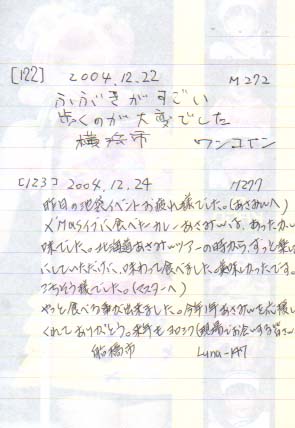 [122] 2004.12.22 M272
ふぶきがすごい
歩くのが大変でした
横浜市 ワンコイン
[123] 2004.12.24 M277
昨日の池袋イベントお疲れ様でした。(あさみんへ)
X'masライブに食べたカレーあさみんは、あったかい
味でした。北海道あさみんツアーの時から、ずっと楽しみ
にしていただけに、味わって食べました。美味しかったです。
ごちそう様でした。(マスターへ)
やっと食べる事が出来ました。今年1年あさみんを応援して
くれてありがとう。来年もヨロシク(現場でお会いする皆さんへ)
船橋市 Luna-147